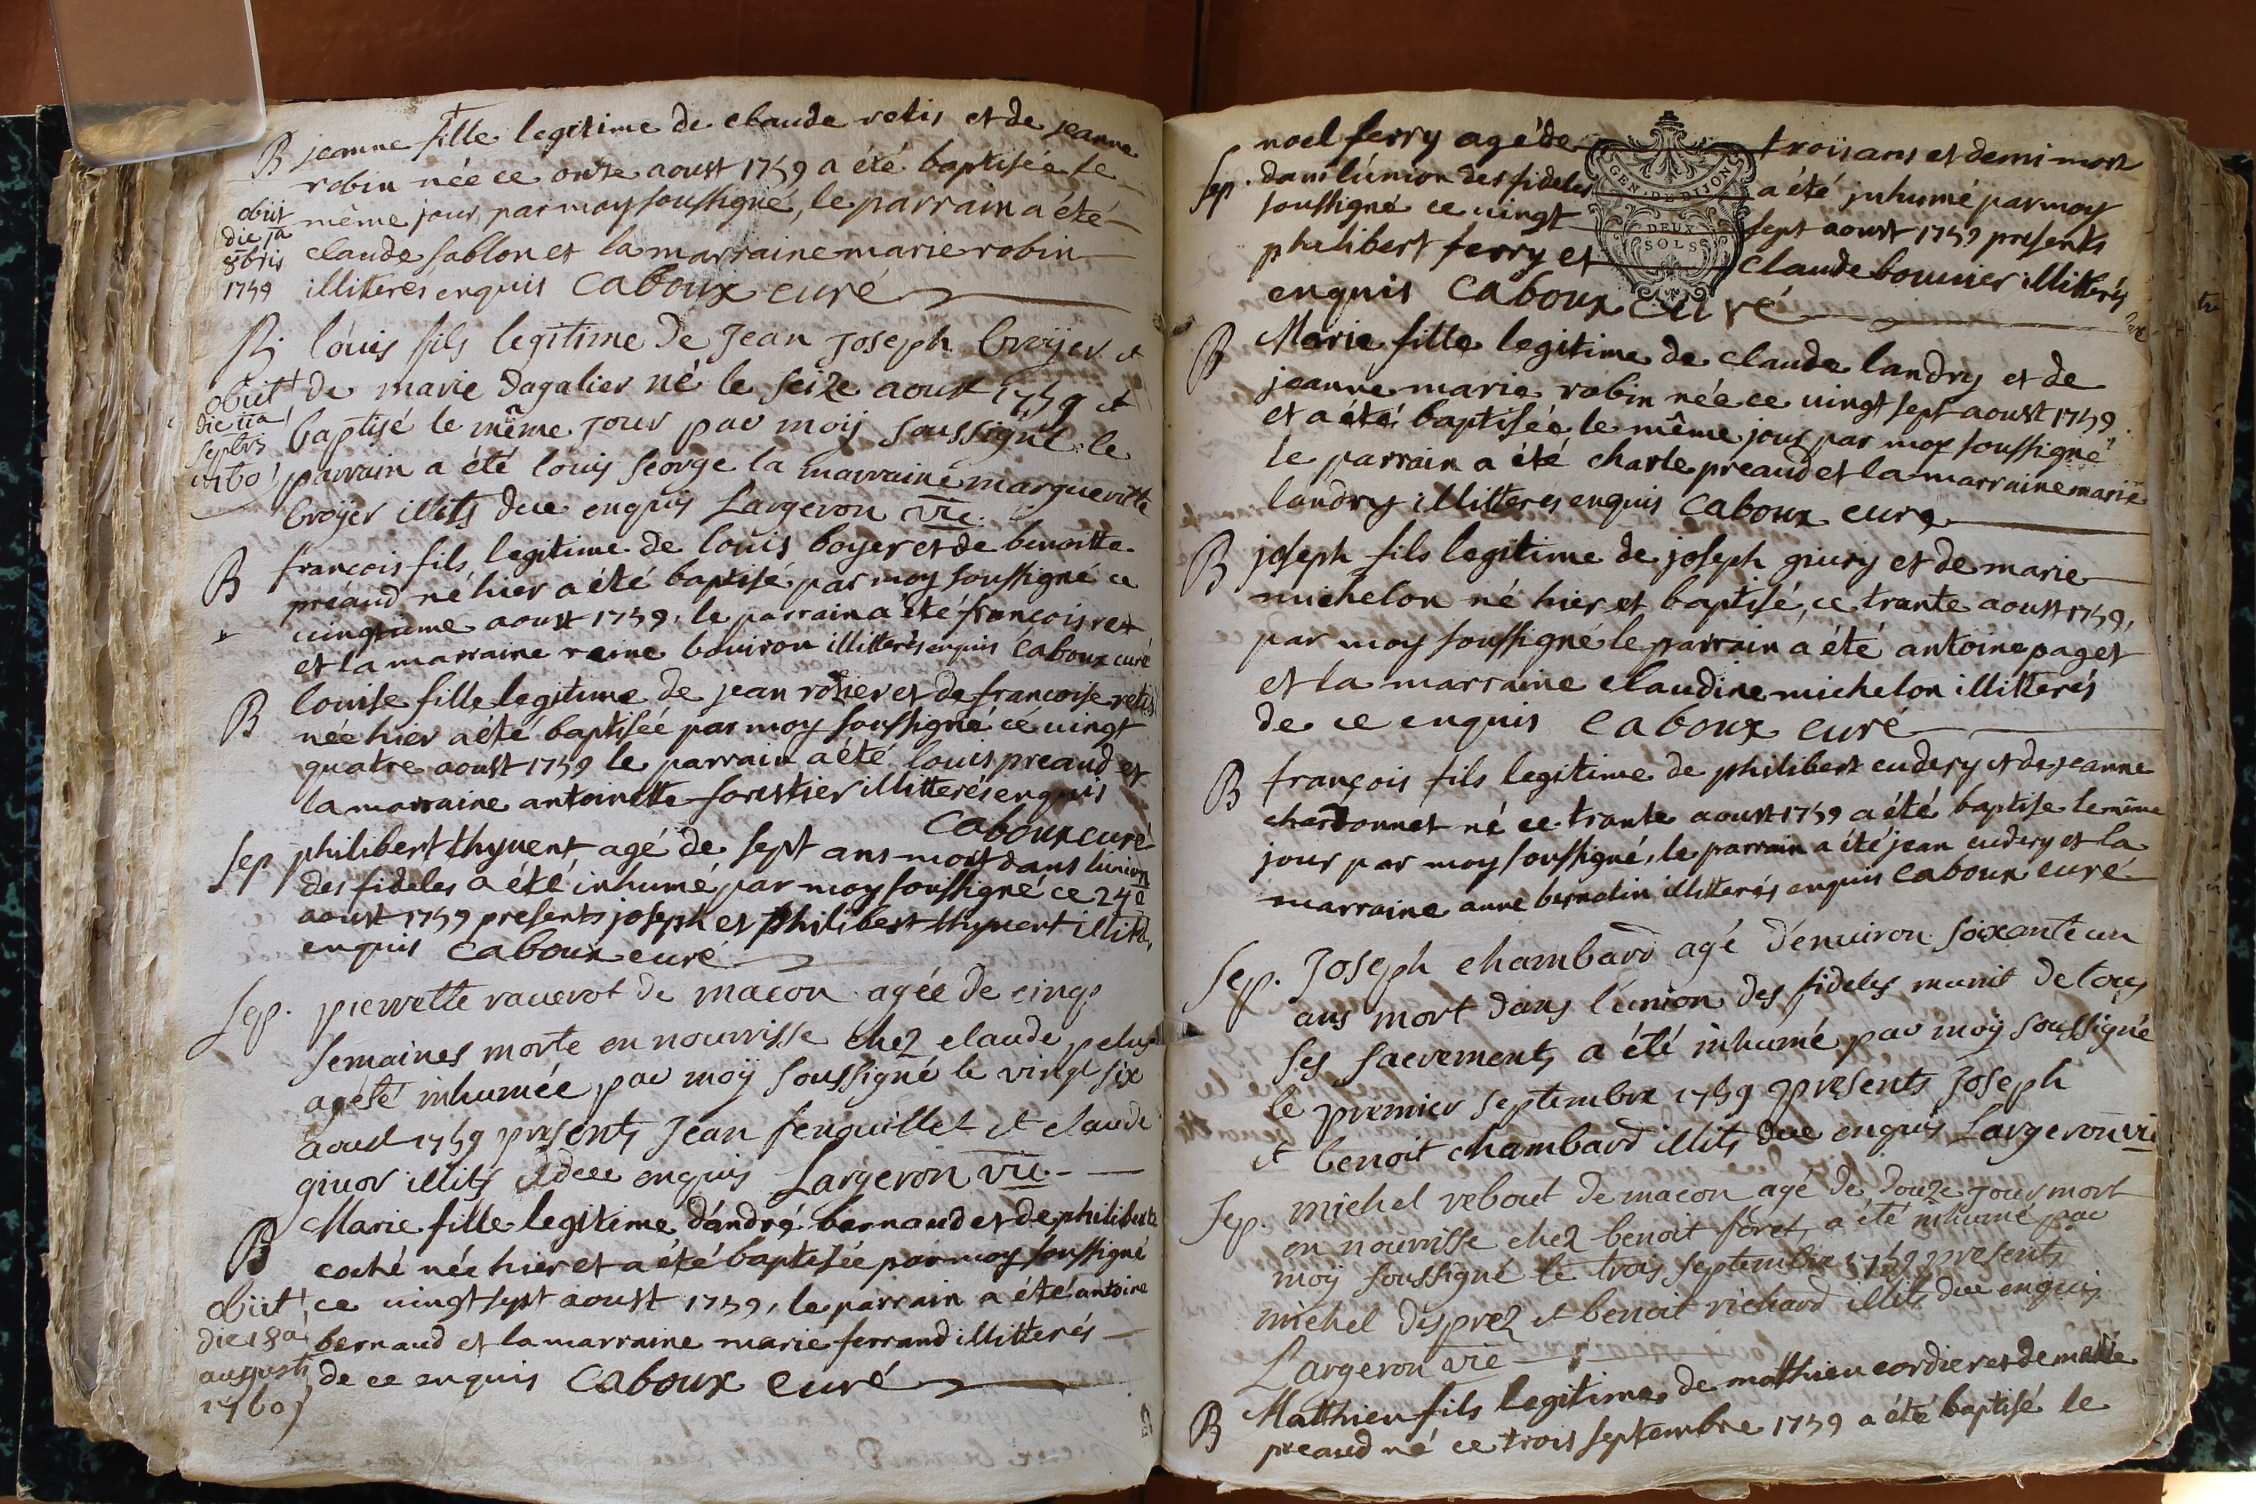 B jeanne fille legitime de claude retis et de jeanne
robin née ce onze aoust 1759 a été baptisée le
même jour par moy soussigné, le parrain a été
claude sablon et la marraine marie robin
illiteres enquis Caboux curé
obiit
die 1a
8bris
1759
B. louis fils legitime de Jean Joseph broÿer et
de marie dagalier né le seize aoust 1759 et
baptisé le même jour par moÿ soussigné le
parrain a été louis george la marraine marguerite
broÿer illits dee enquis Largeron vic.
obiit
die 11a
septbrs
1760
B françois fils legitime de louis boyer et de benoitte
préaud né hier a été baptisé par moy soussigné ce
vingtieme aoust 1759, le parrain a été françois
et la marraine reine bouiron illitterés enquis Caboux curé
B louise fille legitime de jean rozier et de francoise retis
née hier a été baptisée par moy soussigné ce vingt
quatre aoust 1759 le parrain a été louis preaud et
la marraine antoinette forestier illitterés enquis
Caboux curé
Sep philibert thyvent agé de sept ans mort dans lunion
des fideles a été inhumé par moy soussigné ce 24e
aoust 1759 presents joseph et philibert thyvent
enquis Caboux curé
Sep. pierrette raverot de macon agée de cinq
semaines morte en nourrisse chez claude pelus
a été inhumée par moÿ soussigné le vingt six
aoust 1759 presents Jean fenouillet et claude
givor illits dee enquis Largeron vic.
B Marie fille legitime d'andré bernaud et de philiberte
coché née hier et a été baptisée par moy soussigné
ce vingt sept aoust 1759, le parrain a été antoine
bernaud et la marraine marie ferrand illitterés
de ce enquis Caboux curé
obiit
die 18a
augusti
1760
noel ferry agé de trois ans et demi mort
Sep. dans l'union des fideles a été inhumé par moy
soussigné ce vingt sept aoust 1759 presents
philibert ferry et claude bouvier illitterés
enquis Caboux curé
GEN. DE DIJON
DEUX
SOLS
B Marie fille legitime de claude landry et de
jeanne marie robin née ce vingt sept aoust 1759
et a été baptisée le même jour par moy soussigné
le parrain a été charle preaud et la marraine marie
landry illitteres enquis Caboux curé
B joseph fils legitime de joseph grury et de marie
michelon né hier et baptisé, ce trante aoust 1759,
par moy soussigné le parrain a été antoine paget
et la marraine claudine michelon illitterés
de ce enquis Caboux curé
B françois fils legitime de philibert eudery et de jeanne
chardonnet né ce trante aoust 1759 a été baptise le même
jour par moy soussigné, le parrain a été jean eudery et la
marraine anne bernolin illitterés enquis Caboux curé
Sep. Joseph chambard agé d'environ soixante un
ans mort dans l'union des fideles munit de tous
ses sacrements a été inhumé par moÿ soussigné
le premier septembre 1759 presents Joseph
et benoit chambard illits dee enquis Largeron vic
Sep. michel rebout de macon agé de douze jour mort
en nourrisse chez benoit foret, a été inhumé par
moÿ soussigné le trois septembre 1759 presents
michel desprez et benoit richard illits dee enquis
Largeron vic
B Matthieu fils legitime de matthieu cordier et de marie
preaud né ce trois septembre 1759 a été baptisé le